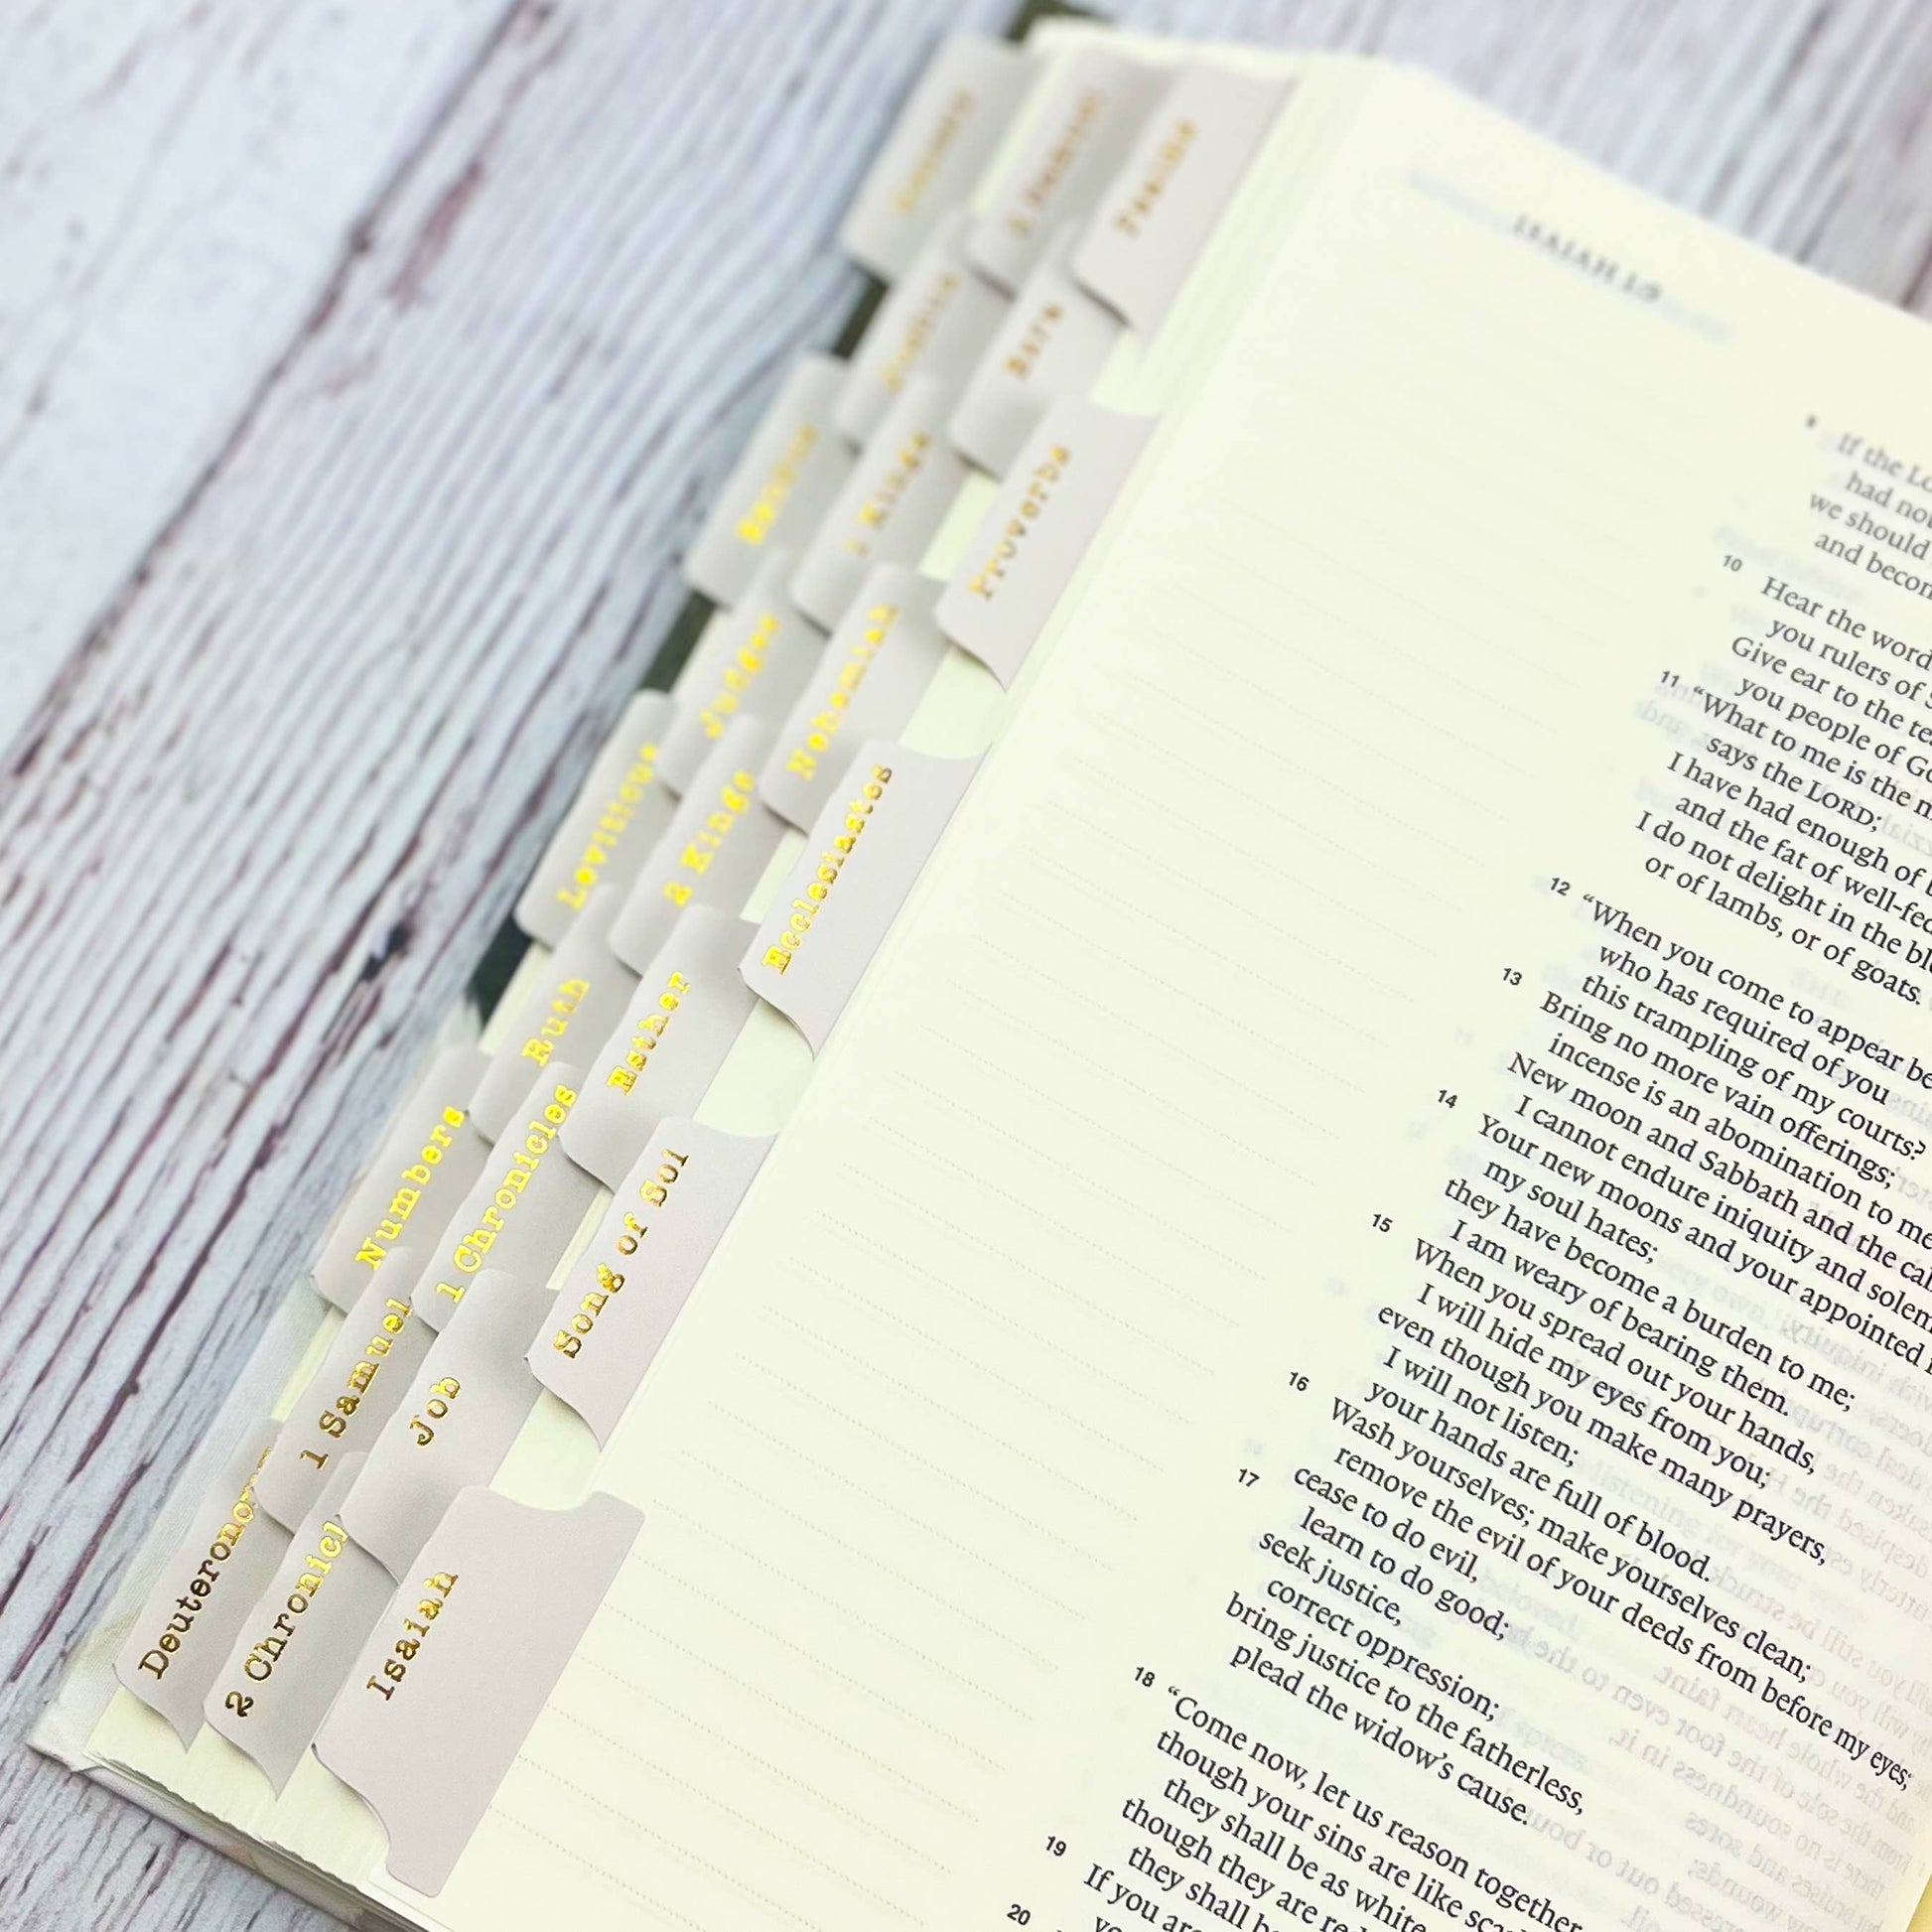 Genesis
Joshua
Exodus
1 Kings
Judges
Leviticus
2 Kings
Ruth
Numbers
1 Chronicles
1 Samuel
Deuteronomy
2 Chronicl
2 Samuel
Ezra
Nehemiah
Esther
Job
Psalms
Proverbs
Ecclesiastes
Song of Sol
Isaiah
ISAIAH 1:9
If the Lo
had not
we should
and becom
10 Hear the word
you rulers of S
Give ear to the te
you people of Go
11 “What to me is the m
says the LORD;
I have had enough of b
and the fat of well-fed
I do not delight in the bl
or of lambs, or of goats.
12 “When you come to appear be
who has required of you
this trampling of my courts?
13 Bring no more vain offerings;
incense is an abomination to me
New moon and Sabbath and the cal
I cannot endure iniquity and solem
14 Your new moons and your appointed f
my soul hates;
they have become a burden to me;
I am weary of bearing them.
15 When you spread out your hands,
I will hide my eyes from you;
even though you make many prayers,
I will not listen;
your hands are full of blood.
16 Wash yourselves; make yourselves clean;
remove the evil of your deeds from before my eyes;
cease to do evil,
17 learn to do good;
seek justice,
correct oppression;
bring justice to the fatherless,
plead the widow’s cause.
18 “Come now, let us reason together
though your sins are like sca
they shall be as white
though they are re
they shall b
19 If you are
20